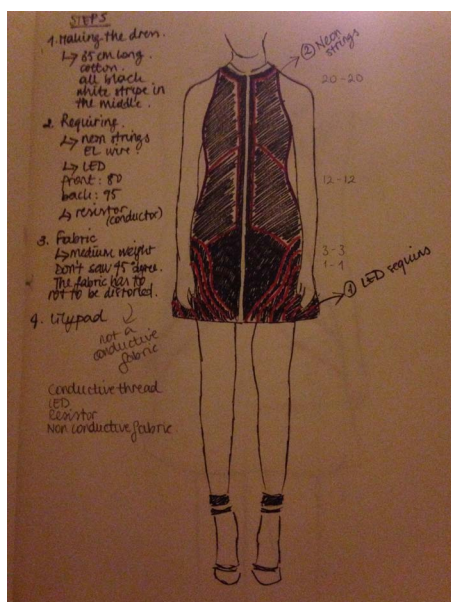 STEPS
1. Making the dress.
↳ 85 cm long.
cotton.
all black
white stripe in
the middle.
2. Requiring.
↳ neon strings
EL wire.
↳ LED
front: 80
back: 95
↳ resistor
(conductor)
3. Fabric
↳ medium weight
Don't saw 45 degree.
The fabric has to
not to be distorted.
4. Lilypad
not a
conductive
fabric
Conductive thread
LED
Resistor
Non conductive fabric
② Neon
strings
20-20
12-12
3-3
1-1
① LED sequins